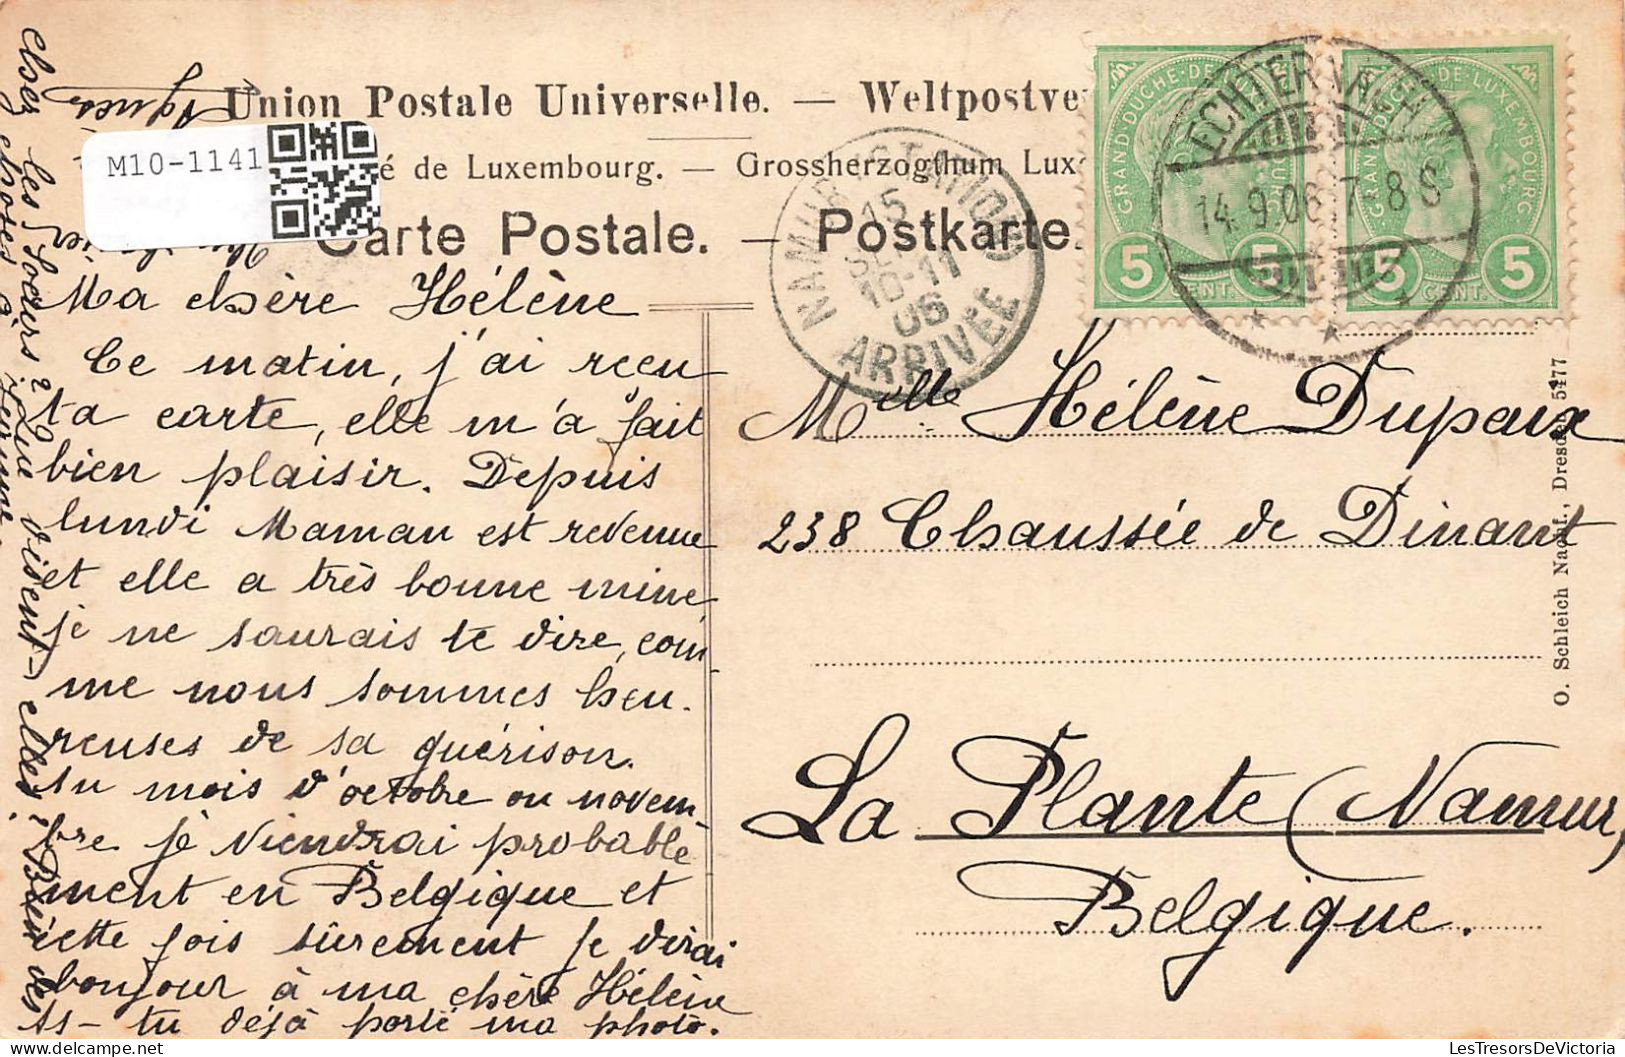 Union Postale Universelle. — Weltpostve
é de Luxembourg. — Grossherzogthum Lux
Carte Postale. — Postkarte.
M10-1141
GRAND DUCHÉ DE LUXEMBOURG
5 CENT. 5
GRAND DUCHÉ DE LUXEMBOURG
5 CENT. 5
ECHTERNACH
14.9.06.7-8S
NAMUR STATION
15
SEPT
10-11
06
ARRIVÉE
Ma chère Hélène
Ce matin, j'ai reçu
ta carte, elle m'a fait
bien plaisir. Depuis
lundi Maman est revenue
et elle a très bonne mine
je ne saurais te dire, com-
me nous sommes heu-
reuses de sa guérison.
Au mois d'octobre ou novem-
bre je viendrai probable
ment en Belgique et
cette fois sûrement je dirai
bonjour à ma chère Hélène
As-tu déjà porté ma photo.
chez les Soeurs? Que disent-elles? Bien des
choses à
Agnès
Melle Hélène Dupaix
238 Chaussée de Dinant
La Plante (Namur)
Belgique.
O. Schleich Nachf., Dresden 5477
LesTresorsDeVictoria
delcampe.net